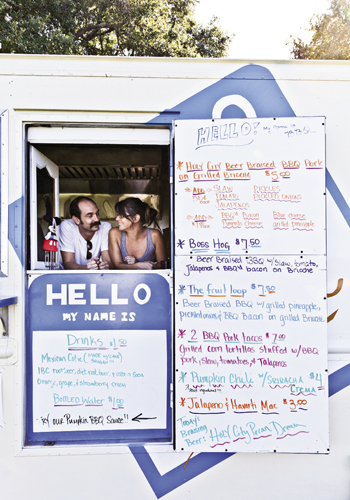 HELLO
MY NAME IS
Drinks $1.50
Mexican Coke
IBC root beer, diet root beer, cream soda
Orange, grape, & strawberry crush
Bottled Water $1.00
Try our Pumpkin BBQ Sauce!!
HELLO!
My Name is
* Holy City Beer Braised BBQ Pork
on Grilled Brioche $5.00
* ADD
SLAW PICKLES
TOMATO PICKLED ONIONS
JALAPENOS
* AND
BBQ'd Bacon Blue cheese
Sweet Cheese grilled pineapple
* Boss Hog $7.50
Beer Braised BBQ w/ Slaw, tomato,
Jalapenos & BBQ'd bacon on Brioche
* The fruit loop $7.50
Beer Braised BBQ w/ grilled pineapple,
pickled onions, & bacon on grilled Brioche
* 2 BBQ Pork tacos $7.00
Grilled corn tortillas stuffed w/ BBQ
pork, slaw, tomatoes, & Jalapenos
* Pumpkin Chili w/ SRIRACHA CREMA $4
* Jalapeno & Havarti Mac $3.00
Today's
Braising
Beer: Holy City Pecan Dream